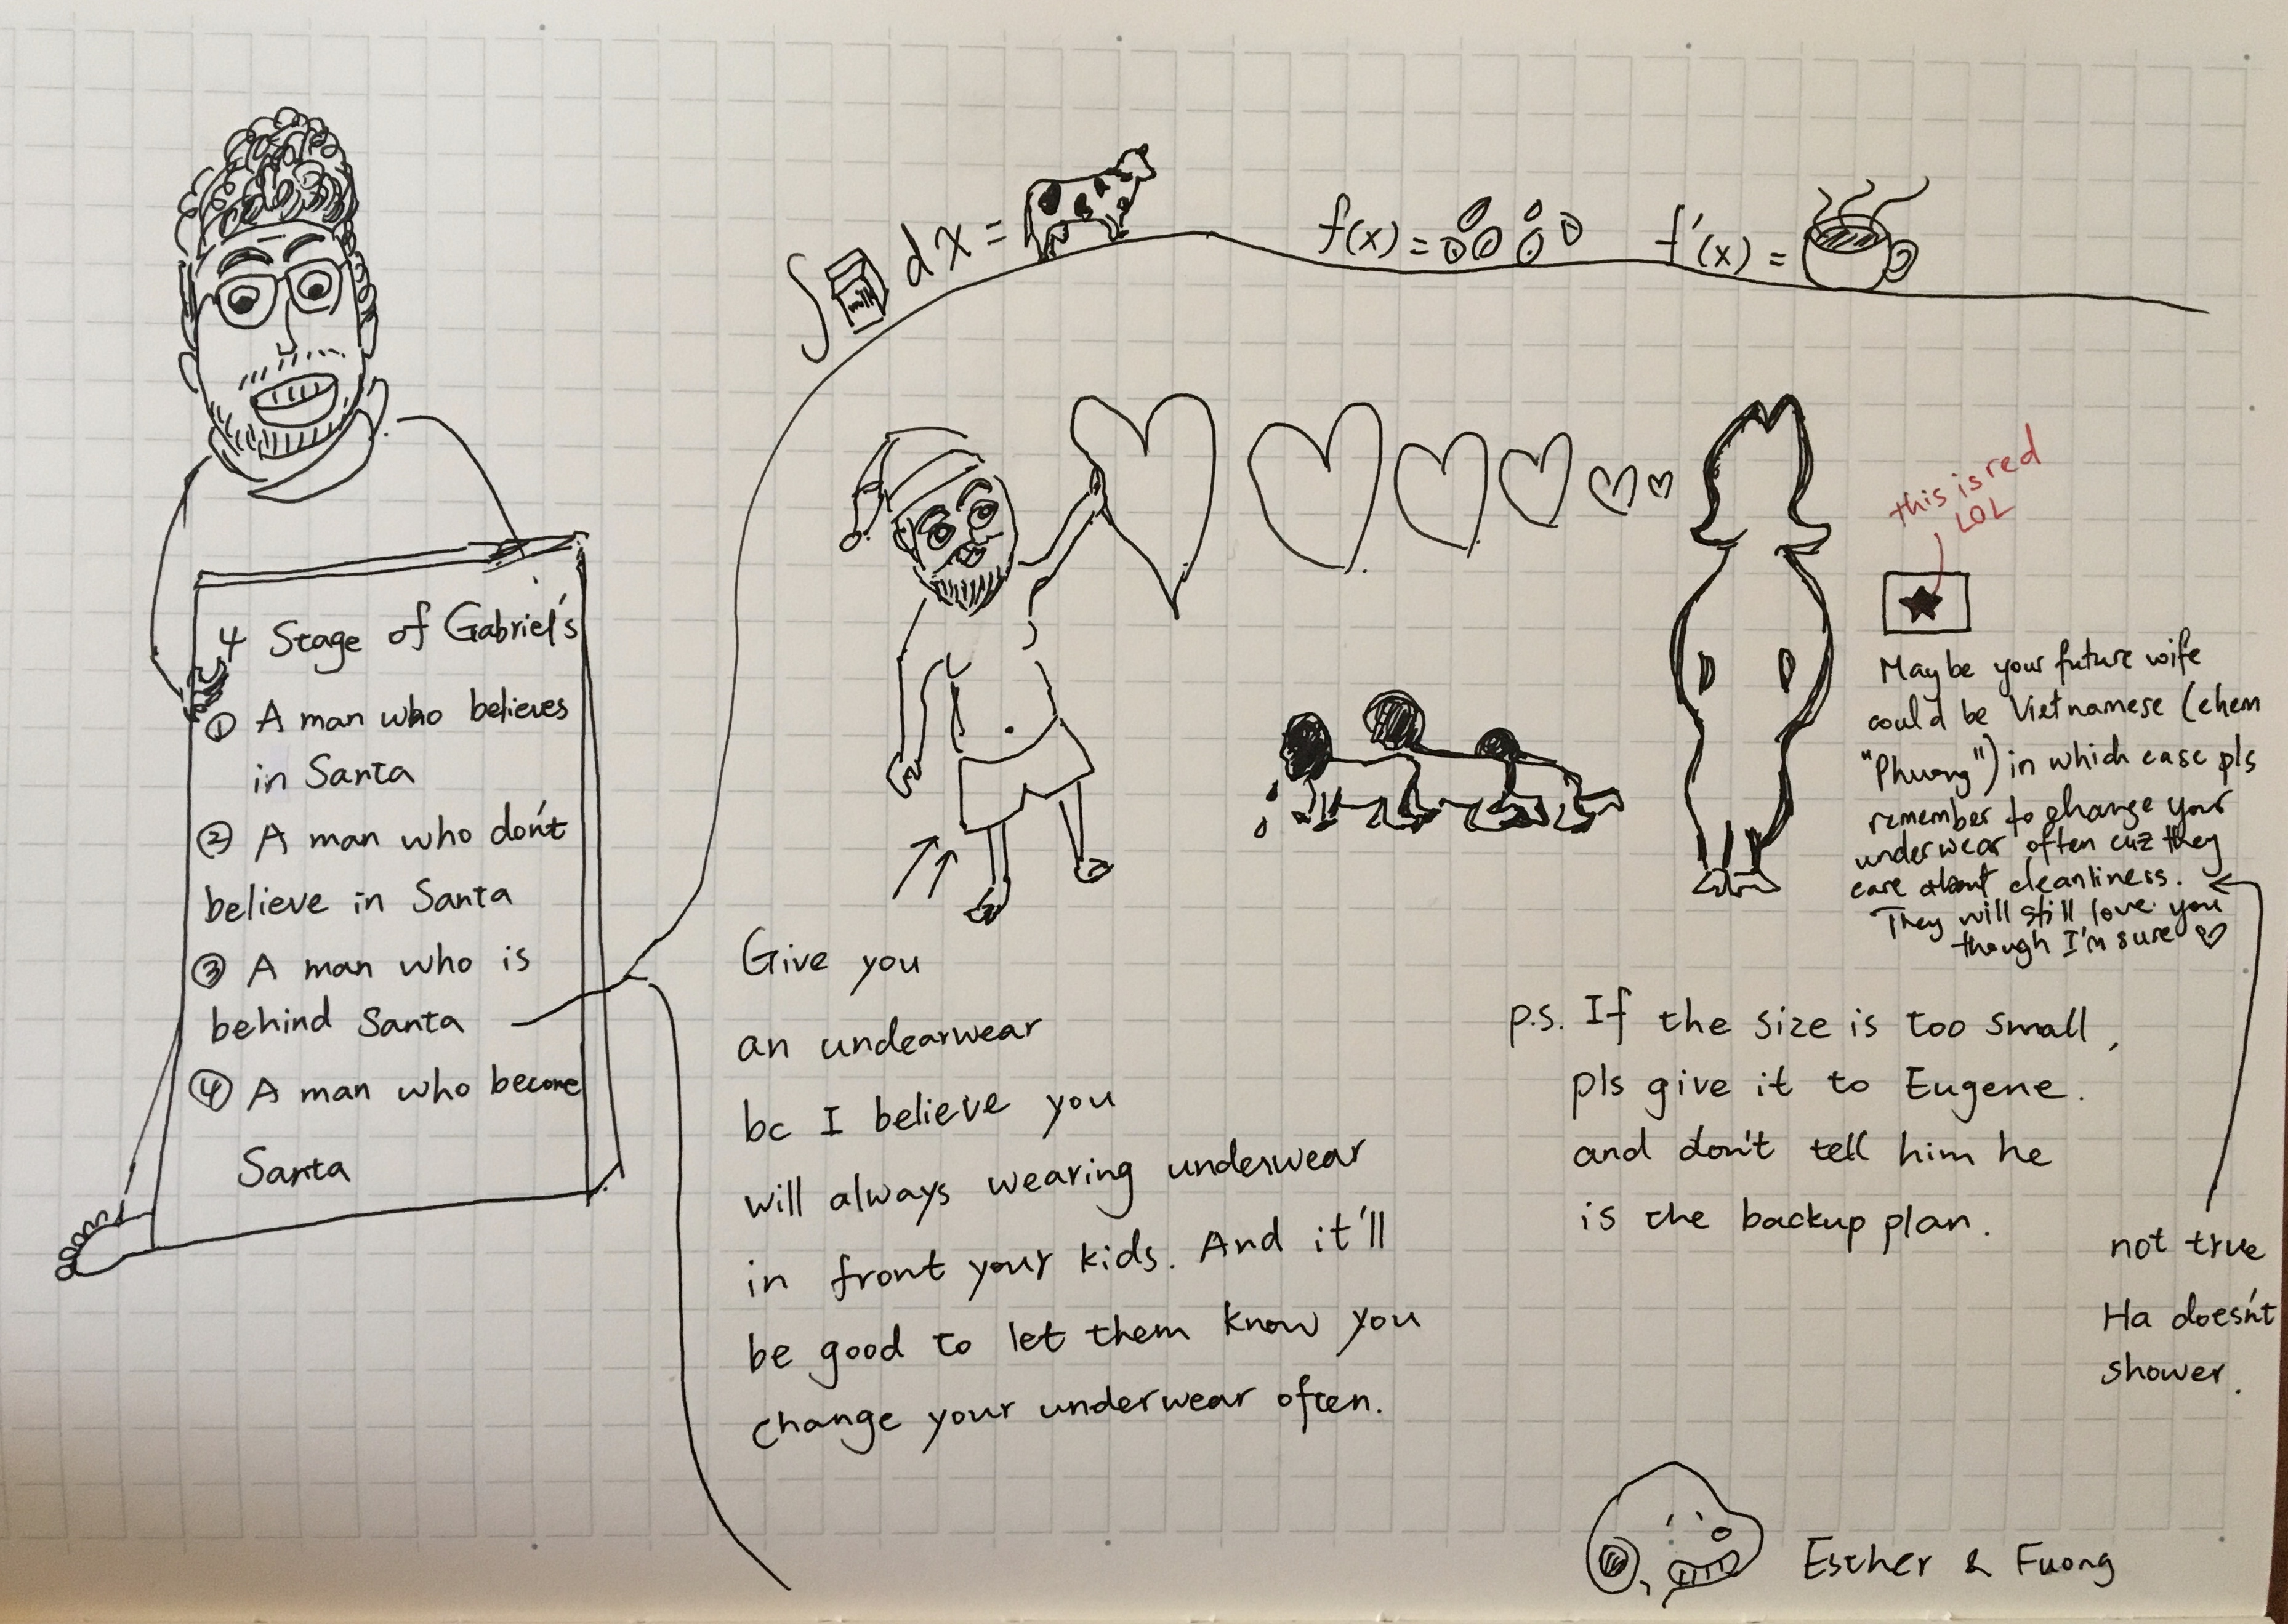 4 Stage of Gabriel's
① A man who believes
in Santa
② A man who don't
believe in Santa
③ A man who is
behind Santa
④ A man who become
Santa
∫ milk dx =
f(x) =
f'(x) =
this is red
LOL
Maybe your future wife
could be Vietnamese (ehem
"Phuong") in which case pls
remember to change your
underwear often cuz they
care about cleanliness.
They will still love you
though I'm sure ♡
Give you
an undearwear
bc I believe you
will always wearing underwear
in front your kids. And it'll
be good to let them know you
change your underwear often.
p.s. If the size is too small,
pls give it to Eugene.
and don't tell him he
is the backup plan.
not true
Ha doesn't
shower.
Esther & Fuong